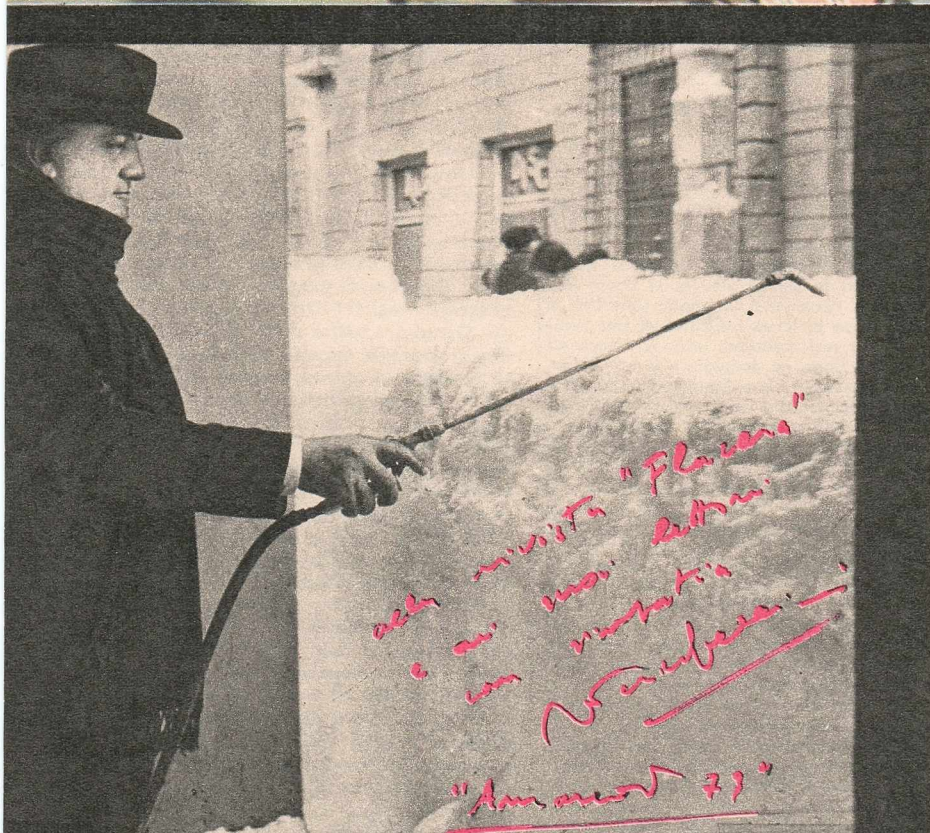 alla rivista "Flacara"
e ai suoi lettori
con simpatia
"Amarcord 79"